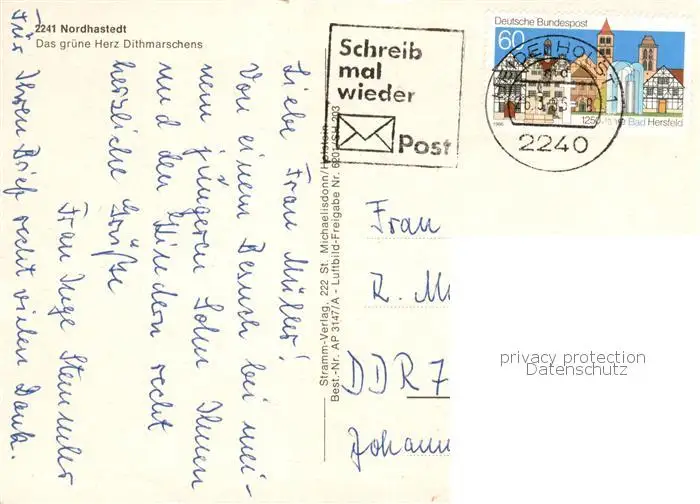 2241 Nordhastedt
Das grüne Herz Dithmarschens
Liebe Frau Müller!
Von einem Besuch bei mei-
nem jüngeren Sohn Ihnen
und den Kindern recht
herzliche Grüße
Frau Inge
Für Ihren Brief recht vielen Dank.
Stramm-Verlag, 222 St. Michaelisdonn/Holstein
Best.-Nr. AP 3147/A - Luftbild-Freigabe Nr. 6201/SH 203
Schreib
mal
wieder
Post
Deutsche Bundespost
60
1250 Bad Hersfeld
1986
2240
Frau
R. M
DDR 7
Johann
privacy protection
Datenschutz